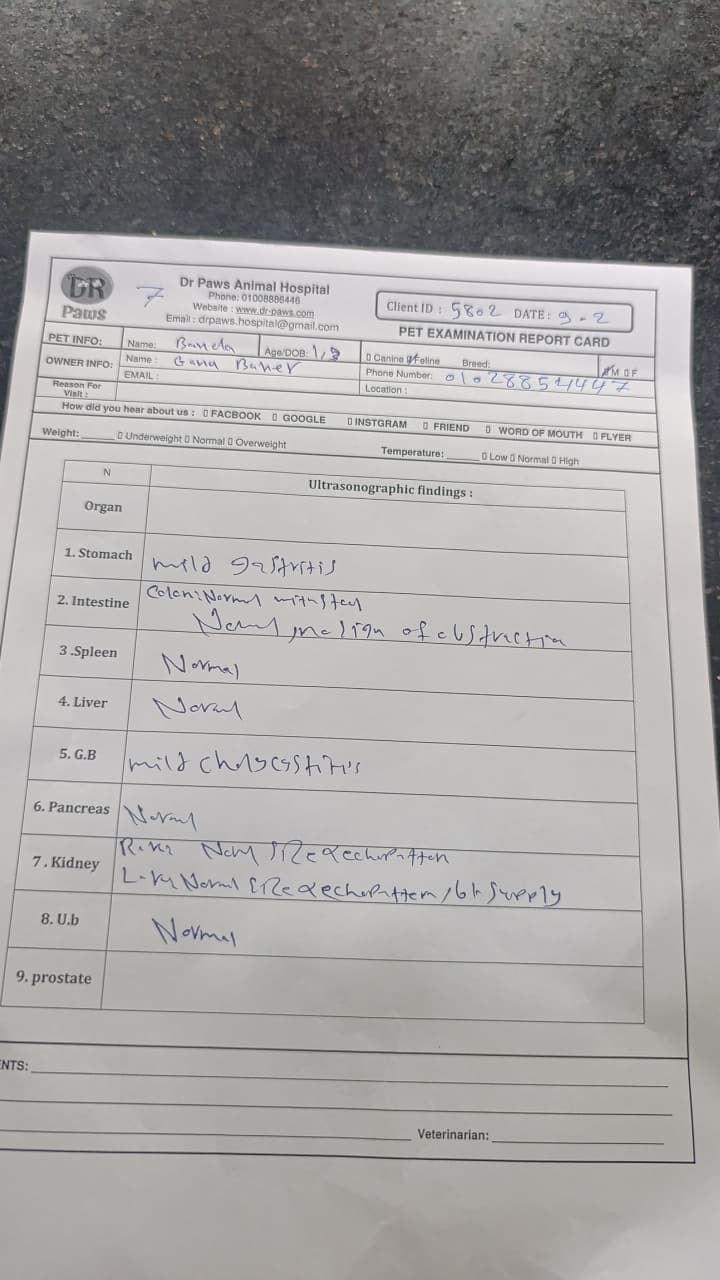 DR Paws
7
Dr Paws Animal Hospital
Phone: 01008886446
Website : www.dr-paws.com
Email : drpaws.hospital@gmail.com
Client ID : 5802 DATE: 9-2
PET EXAMINATION REPORT CARD
PET INFO: Name: Age/DOB: 1,9 Canine Feline Breed: M F
OWNER INFO: Name : Gana Phone Number: 01028851447
EMAIL : Location :
Reason For Visit :
How did you hear about us : FACBOOK GOOGLE INSTGRAM FRIEND WORD OF MOUTH FLYER
Weight:______ Underweight Normal Overweight Temperature:______ Low Normal High
N Ultrasonographic findings :
Organ
1. Stomach mild gastritis
2. Intestine Colon: Normal with
sign of obstruction
3 .Spleen Normal
4. Liver
5. G.B mild
6. Pancreas
7. Kidney
supply
8. U.b Normal
9. prostate
NTS:
Veterinarian: